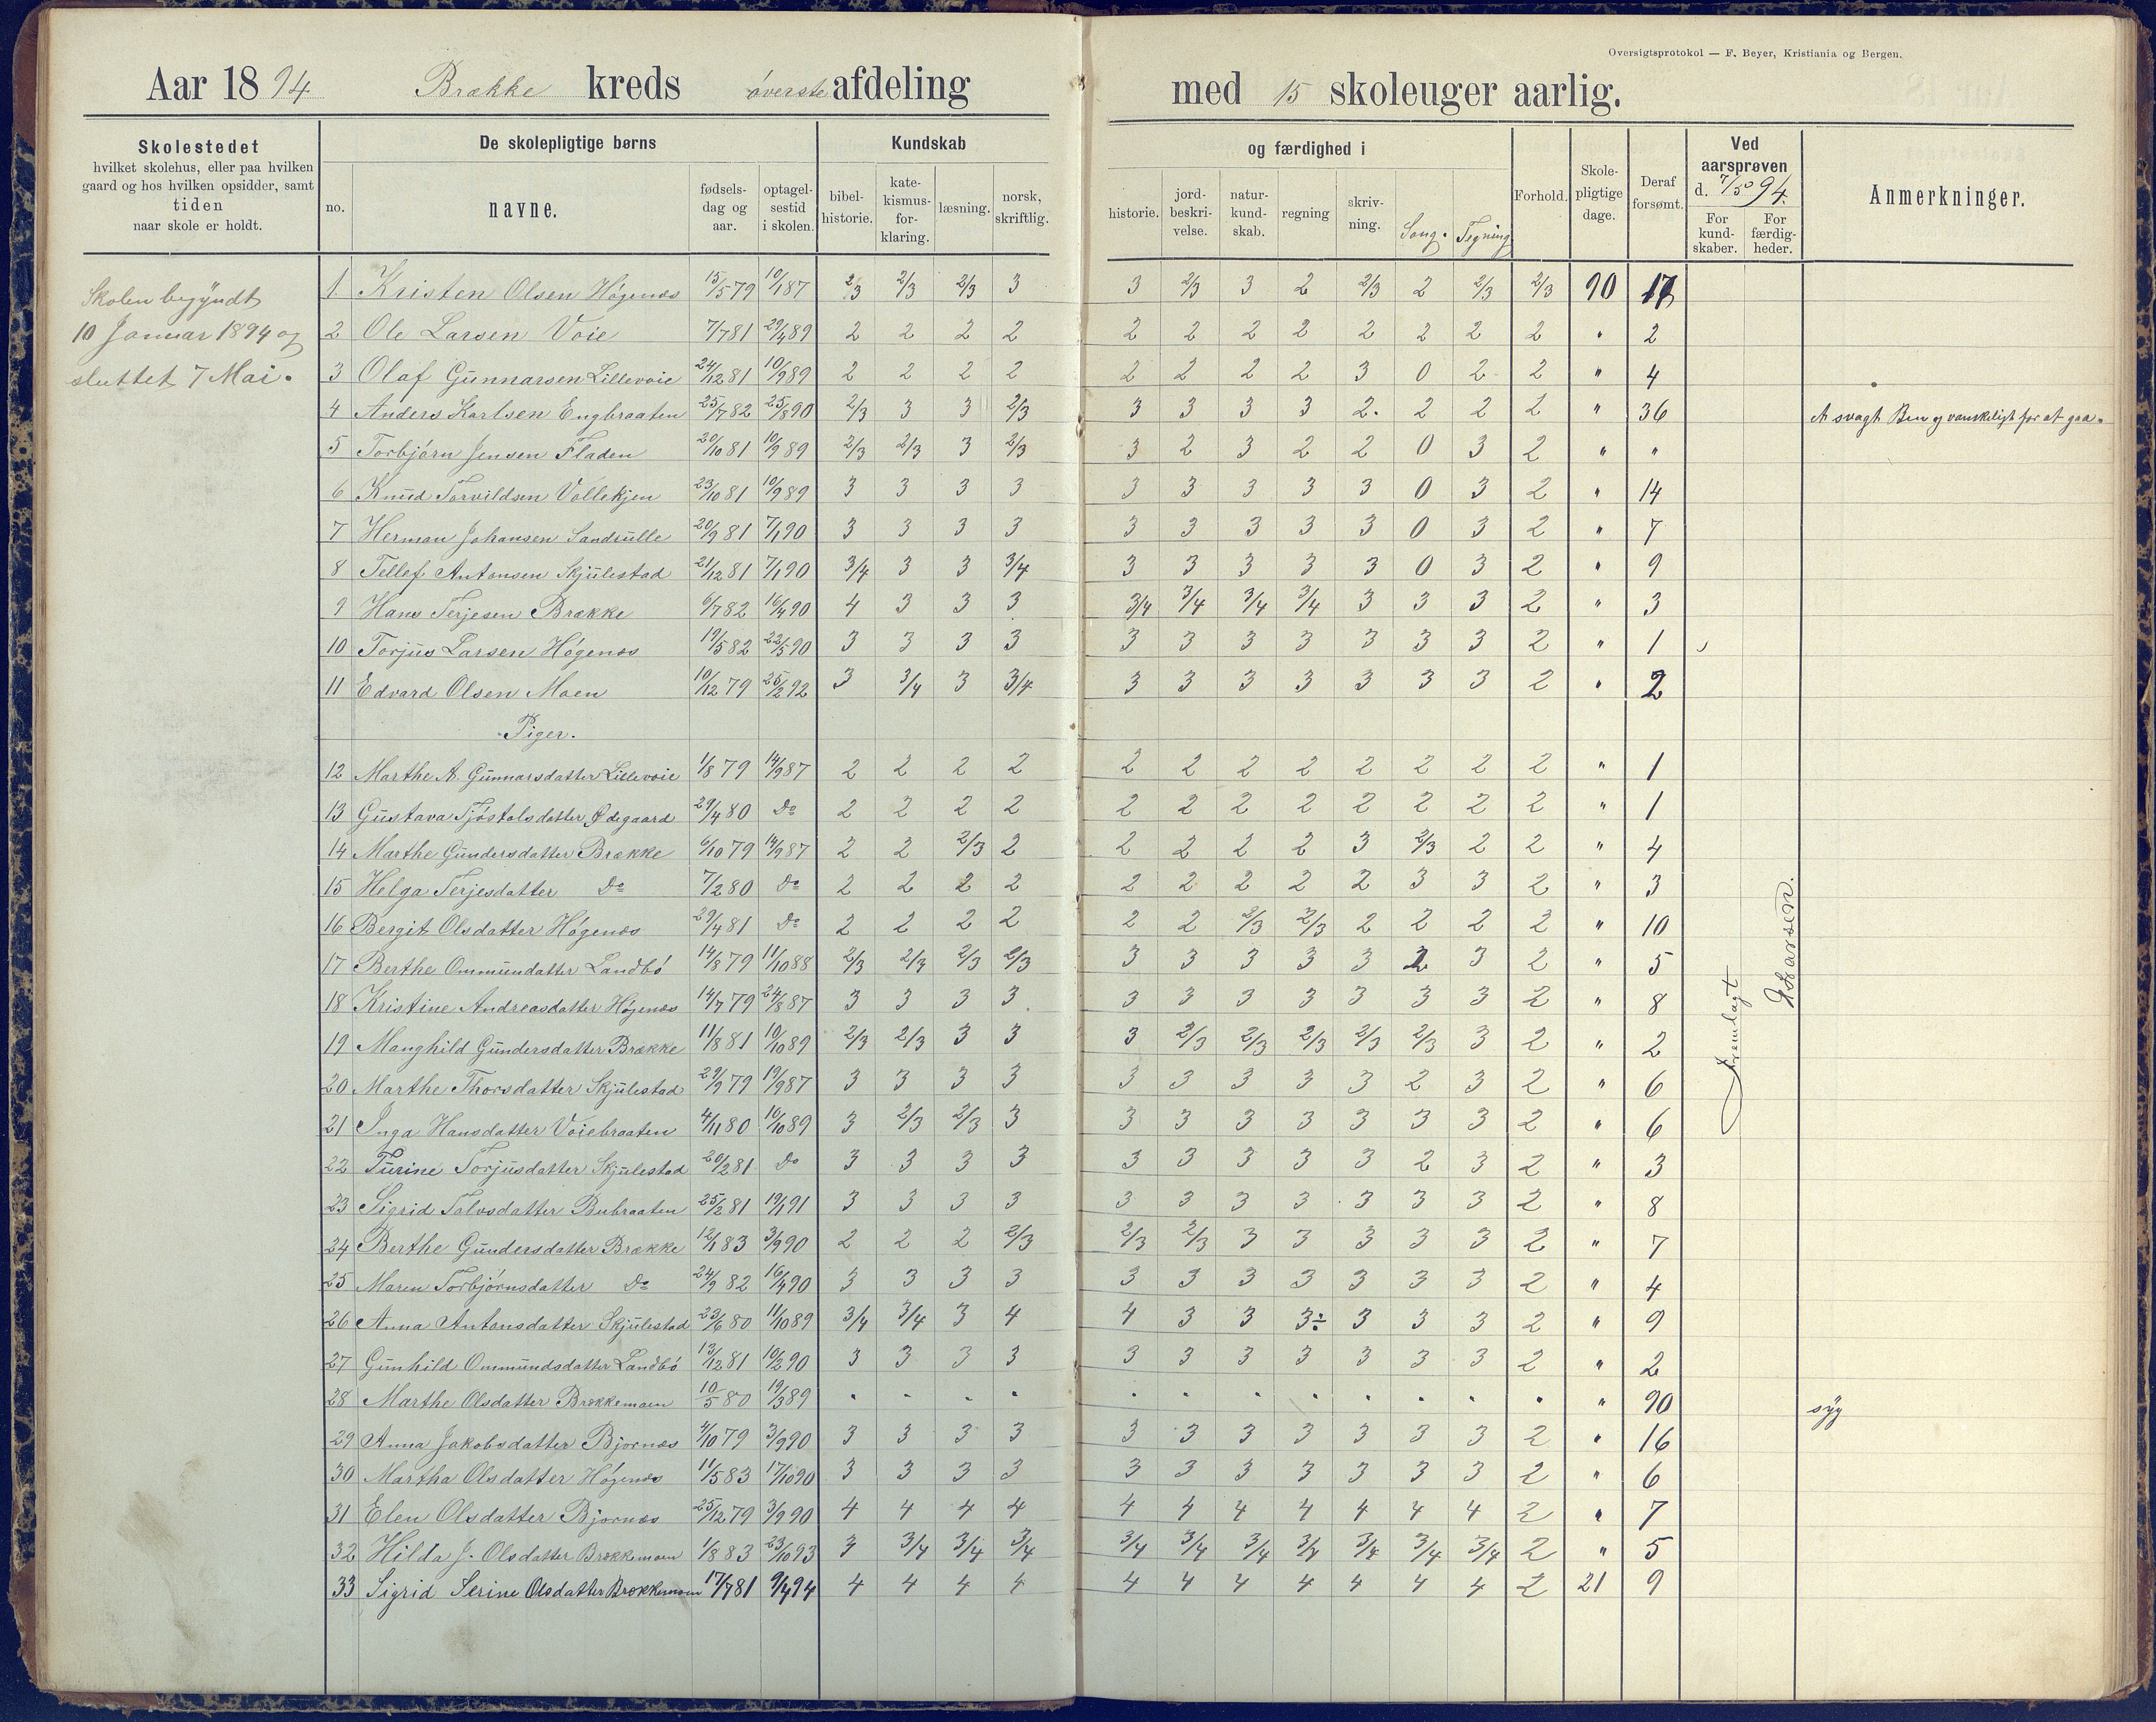 Oversigtsprotokol — F. Beyer, Kristiania og Bergen.
Aar 1894 Brække kreds øverste afdeling med 15 skoleuger aarlig.
Skolestedet
hvilket skolehus, eller paa hvilken
gaard og hos hvilken opsidder, samt
tiden
naar skole er holdt.
De skolepligtige børns
no. navne. fødsels-dag og aar. optagel-sestid i skolen.
Kundskab og færdighed i
bibel-historie. kate-kismus-for-klaring. læsning. norsk, skriftlig. historie. jord-beskri-velse. natur-kund-skab. regning skriv-ning. Sang. Tegning
Forhold. Skole-pligtige dage. Deraf forsømt.
Ved aarsprøven d. 7/5 94.
For kund-skaber. For færdig-heder.
Anmerkninger.
Skolen begyndt
10 Januar 1894 og
sluttet 7 Mai.
1 Kristen Olsen Høgenæs 15/5 79 10/1 87 2/3 2/3 2/3 3 3 2/3 3 2 2/3 2 2/3 2/3 90 17
2 Ole Larsen Voie 7/7 81 29/4 89 2 2 2 2 2 2 2 2 2 2 2 2 " 2
3 Olaf Gunnarsen Lillevoie 24/12 81 10/9 89 2 2 2 2 2 2 2 2 3 0 2 2 " 4
4 Anders Karlsen Engbraaten 25/7 82 25/8 90 2/3 3 3 2/3 3 3 3 3 2. 2 2 2 " 36 svagt Ben og vanskeligt for at gaa.
5 Torbjørn Jensen Fladen 20/10 81 10/9 89 2/3 2/3 3 2/3 3 2 3 2 2 0 3 2 " "
6 Knud Torvildsen Vollekjen 23/10 81 10/9 89 3 3 3 3 3 3 3 3 3 0 3 2 " 14
7 Herman Johansen Sandsulle 20/9 81 7/1 90 3 3 3 3 3 3 3 3 3 0 3 2 " 7
8 Tellef Antonsen Skjulestad 21/12 81 7/1 90 3/4 3 3 3/4 3 3 3 3 3 0 3 2 " 9
9 Hans Terjesen Brække 6/7 82 16/4 90 4 3 3 3 3/4 3/4 3/4 3/4 3 3 3 2 " 3
10 Torjus Larsen Høgenæs 19/5 82 22/5 90 3 3 3 3 3 3 3 3 3 3 3 2 " 1
11 Edvard Olsen Moen 10/12 79 25/2 92 3 3/4 3 3/4 3 3 3 3 3 3 3 2 " 2
Piger.
12 Marthe A. Gunnarsdatter Lillevoie 1/8 79 14/9 87 2 2 2 2 2 2 2 2 2 2 2 2 " 1
13 Gustava Tjøstolsdatter Ødegaard 29/4 80 Do 2 2 2 2 2 2 2 2 2 2 2 2 " 1
14 Marthe Gundersdatter Brække 6/10 79 14/9 87 2 2 2/3 2 2 2 2 2 3 2/3 2 2 " 4
15 Helga Terjesdatter Do 7/2 80 Do 2 2 2 2 2 2 2 2 2 3 3 2 " 3
16 Bergit Olsdatter Høgenæs 29/4 81 Do 2 2 2 2 2 2 2/3 2/3 2 2 2 2 " 10
17 Berthe Ommundatter Landbø 14/8 79 11/10 88 2/3 2/3 2/3 2/3 3 3 3 3 3 2 3 2 " 5
18 Kristine Andreasdatter Høgenæs 14/7 79 24/8 87 3 3 3 3 3 3 3 3 3 3 3 2 " 8
19 Manghild Gundersdatter Brække 11/8 81 10/10 89 2/3 2/3 3 3 3 2/3 2/3 2/3 2/3 2/3 3 2 " 2
20 Marthe Thorsdatter Skjulestad 29/9 79 19/9 87 3 3 3 3 3 3 3 3 3 2 3 2 " 6
21 Inga Hansdatter Voiebraaten 4/11 80 10/10 89 3 2/3 2/3 3 3 3 3 3 3 3 3 2 " 6
22 Turine Torjusdatter Skjulestad 20/2 81 Do 3 3 3 3 3 3 3 3 3 2 3 2 " 3
23 Sigrid Tolvsdatter Bubraaten 25/2 81 19/1 91 3 3 3 3 3 3 3 3 3 3 3 2 " 8
24 Berthe Gundersdatter Brække 12/1 83 3/9 90 2 2 2 2/3 2/3 2/3 3 3 3 3 3 2 " 7
25 Maren Torbjørnsdatter Do 24/9 82 16/4 90 3 3 3 3 3 3 3 3 3 3 3 2 " 4
26 Anna Antonsdatter Skjulestad 23/6 80 11/10 89 3/4 3/4 3 4 4 3 3 3÷ 3 3 3 2 " 9
27 Gunhild Ommundsdatter Landbø 13/12 81 10/2 90 3 3 3 3 3 3 3 3 3 3 3 2 " 2
28 Marthe Olsdatter Brækkemoen 10/5 80 19/3 89 " " " " " " " " " " " " " 90 syg
29 Anna Jakobsdatter Bjornæs /10 79 3/9 90 3 3 3 3 3 3 3 3 3 3 3 2 " 16
30 Martha Olsdatter Høgenæs 11/5 83 17/10 90 3 3 3 3 3 3 3 3 3 3 3 2 " 6
31 Elen Olsdatter Bjornæs 25/12 79 3/9 90 4 4 4 4 4 4 4 4 4 4 4 2 " 7
32 Hilda J. Olsdatter Brækkemoen 1/8 83 23/10 93 3 3/4 3/4 3/4 3/4 3/4 3/4 3/4 3/4 3/4 3/4 2 " 5
33 Sigrid Serine Olsdatter Brækkemoen 17/7 81 9/4 94 4 4 4 4 4 4 4 4 4 4 4 2 21 9
Fremlagt
Larsen.